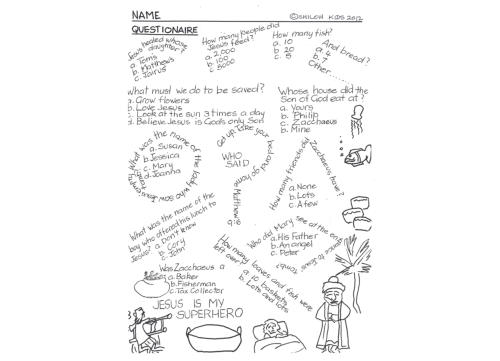 NAME
©SHILOH KIDS 2012
QUESTIONAIRE
Jesus healed whose
daughter?
a. Toms
b. Matthews
c. Jairus
How many people did
Jesus feed?
a. 2,000
b. 100
c. 5000
How many fish?
a. 10
b. 20
c. 5
And bread?
a. 4
b. 7
Other.....
What must we do to be saved?
a. Grow flowers
b. Love Jesus
c. Look at the sun 3 times a day
d. Believe Jesus is God's only Son
Whose house did the
Son of God eat at?
a. Yours
b. Philip
c. Zacchaeus
b. Mine
What was the name of the lady who saw Jesus
a. Susan
b. Jessica
c. Mary
d. Joanna
Get up, take your bed and go home
Matthew
9:6
WHO
SAID
How many friends did
Zacchaeus have?
a. None
b. Lots
c. A few
What was the name of the
boy who offered his lunch to
Jesus?
a. Don't know
b. Cory
c. John
Who did Mary see at the
entrance to Jesus' tomb?
a. His Father
b. An angel
c. Peter
How many loaves and fish were
left over?
a. 10 baskets
b. Lots and lots
Was Zacchaeus a
a. Baker
b. Fisherman
c. Tax Collector
JESUS IS MY
SUPERHERO